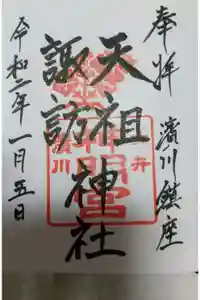 奉拝　濱川鎮座
天祖
諏訪
神社
令和二年一月五日